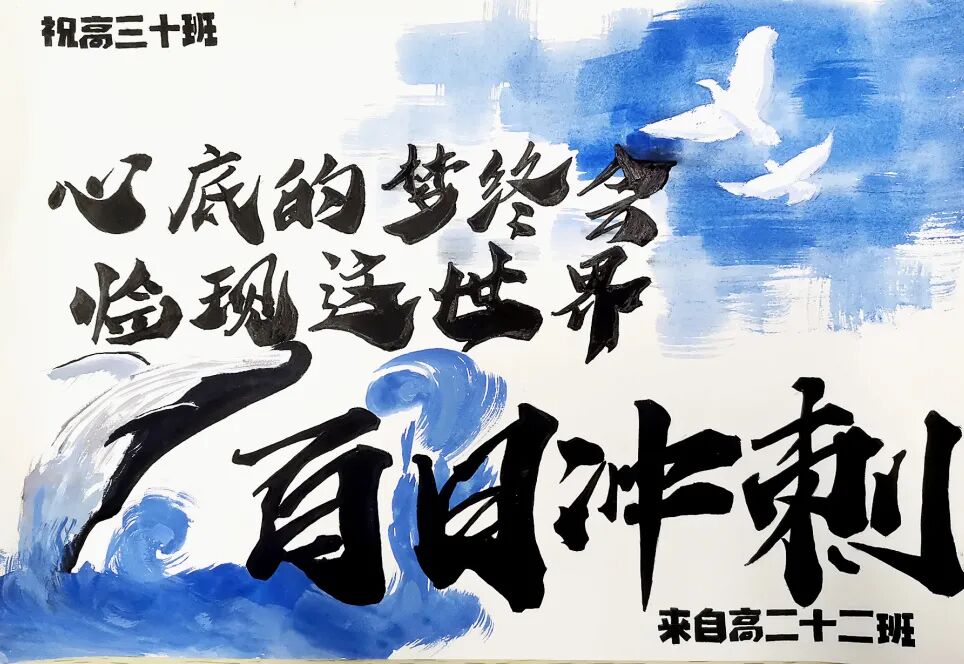 祝高三十班
心底的梦终会
临现这世界
百日冲刺
来自高二十二班